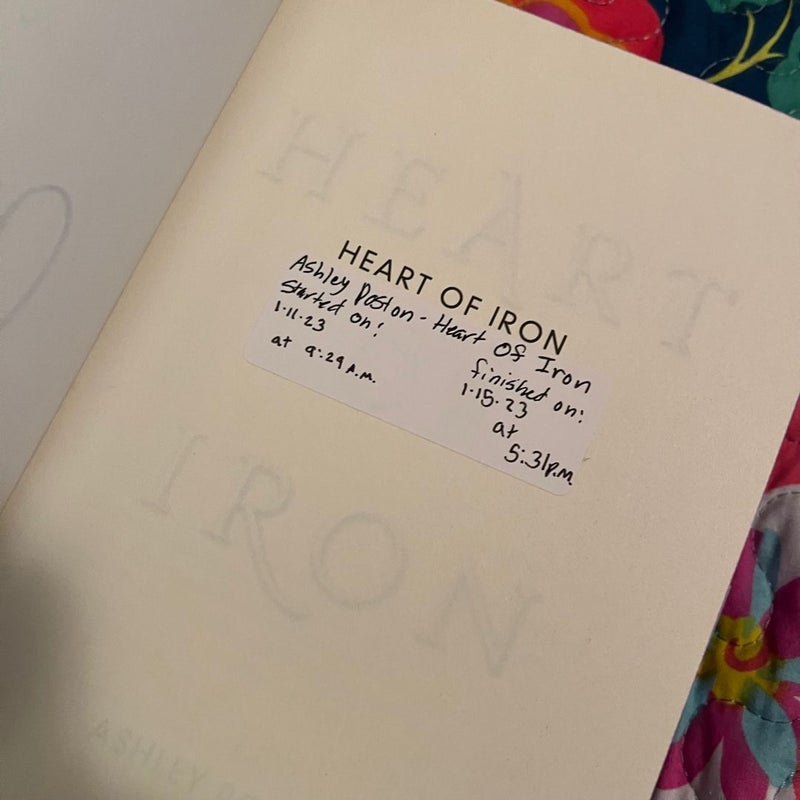 HEART OF IRON
Ashley Poston - Heart Of Iron
Started on:
1.11.23
at 9:29 A.M.
finished on:
1.15.23
at
5:31p.m.
HEART
IRON
ASHLEY